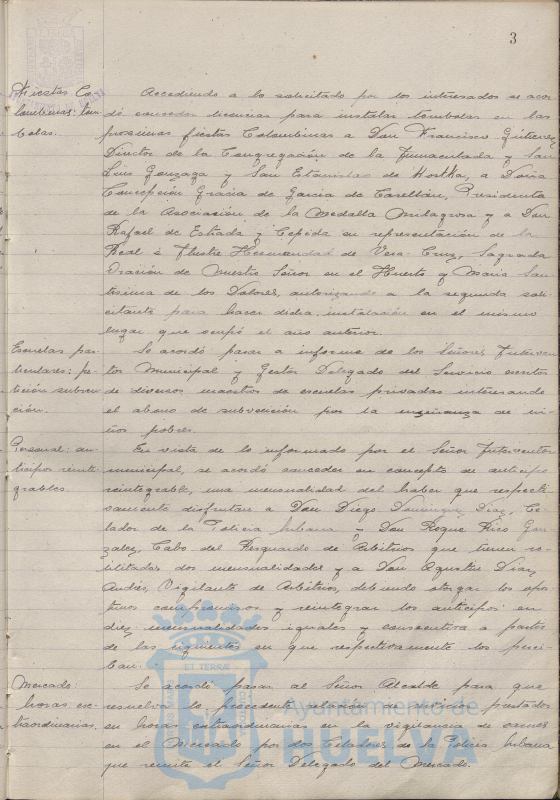 3
Fiestas Co-
lombinas: tóm-
bolas.
Accediendo a lo solicitado por los interesados se acor-
dó conceder licencias para instalar tómbolas en las
próximas fiestas Colombinas a Don Francisco Gutierrez,
Director de la Congregación de la Inmaculada y San
Luis Gonzaga y San Estanislao de Kostka, a Doña
Concepción Gracia de Garcia de Castellón, Presidenta
de la Asociación de la Medalla Milagrosa y a Don
Rafael de Estrada y Cepeda en representación de la
Real é Ilustre Hermandad de Vera-Cruz, Sagrada
Oración de Nuestro Señor en el Huerto y Maria San-
tisima de los Dolores, autorizando a la segunda soli-
citante para hacer dicha instalación en el mismo
lugar que ocupó el año anterior.
Escuelas par-
ticulares: pe-
tición subven-
ción.
Se acordó pasar a informe de los Señores Interven-
tor Municipal y Gestor Delegado del Servicio escritos
de diversos maestros de escuelas privadas interesando
el abono de subvención por la enseñanza de ni-
ños pobres.
Personal: an-
ticipos reinte-
grables.
En vista de lo informado por el Señor Interventor
municipal, se acordó conceder en concepto de anticipo
reintegrable, una mensualidad del haber que respecti-
vamente disfrutan a Don Diego Dominguez Diaz, Ce-
lador de la Policia Urbana y Don Roque Rico Gon-
zalez, Cabo del Resguardo de Arbitrios que tienen so-
licitadas dos mensualidades y a Don Agustin Diaz
Andrés, Vigilante de Arbitrios, debiendo otorgar los opor-
tunos compromisos y reintegrar los anticipos en
diez mensualidades iguales y consecutivas a partir
de las siguientes en que respectivamente los perci-
ban.
Mercado:
horas ex-
traordinarias.
Se acordó pasar al Señor Alcalde para que
resuelva lo procedente relación de servicios prestados
en horas extraordinarias en la vigilancia de carnes
en el Mercado por dos Celadores de la Policia Urbana
que remite el Señor Delegado del Mercado.
ET TERRAE
Ayuntamiento de
HUELVA